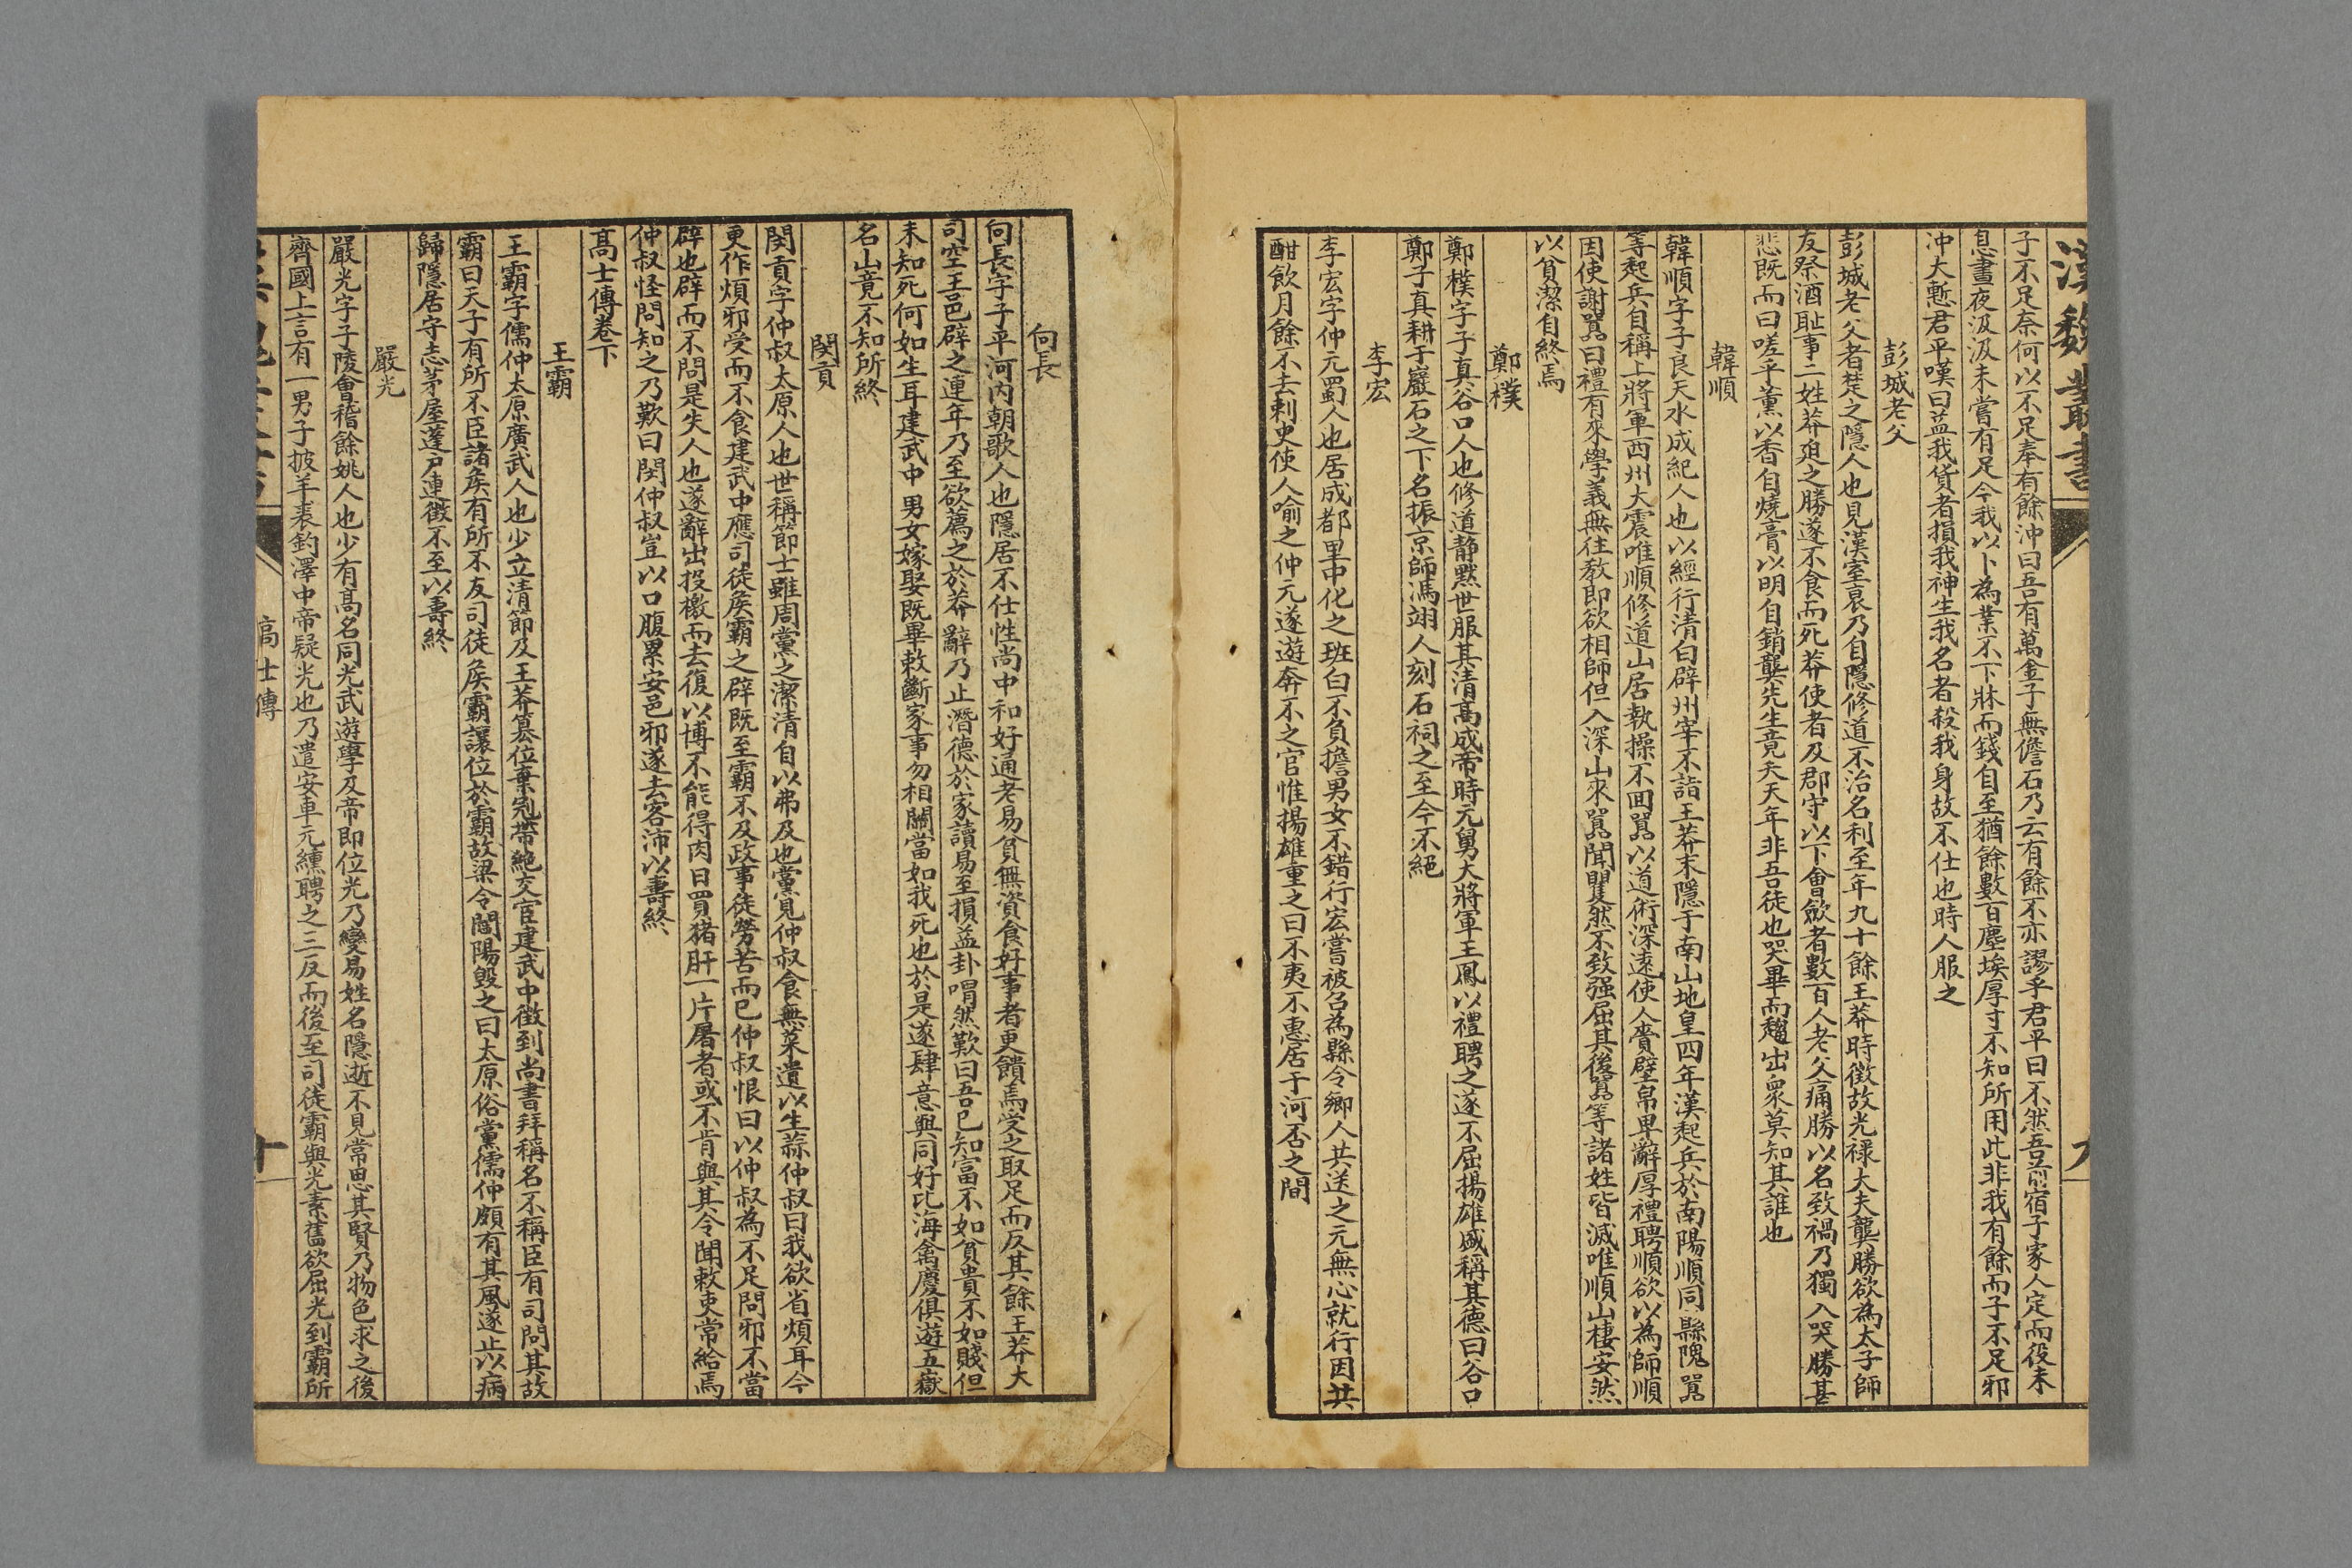 漢魏叢書
子不足奈何以不足奉有餘沖曰吾有萬金子無儋石乃云有餘不亦謬乎君平曰不然吾前宿子家人定而役未
息晝夜汲汲未嘗有足今我以卜為業不下牀而錢自至猶餘數百塵埃厚寸不知所用此非我有餘而子不足邪
沖大慙君平嘆曰益我貨者損我神生我名者殺我身故不仕也時人服之
彭城老父
彭城老父者楚之隱人也見漢室衰乃自隱修道不治名利至年九十餘王莽時徵故光祿大夫龔勝欲為太子師
友祭酒耻事二姓莽迫之勝遂不食而死莽使者及郡守以下會歛者數百人老父痛勝以名致禍乃獨入哭勝甚
悲既而曰嗟乎薰以香自燒膏以明自銷龔先生竟夭天年非吾徒也哭畢而趨出衆莫知其誰也
韓順
韓順字子良天水成紀人也以經行清白辟州宰不詣王莽末隱于南山地皇四年漢起兵於南陽順同縣隗囂
等起兵自稱上將軍西州大震唯順修道山居執操不囬囂以道術深遠使人齎璧帛卑辭厚禮聘順欲以為師順
因使謝囂曰禮有來學義無往教即欲相師但入深山來囂聞矍然不致强屈其後囂等諸姓皆滅唯順山棲安然
以貧潔自終焉
鄭樸
鄭樸字子真谷口人也修道静默世服其清高成帝時元舅大將軍王鳳以禮聘之遂不屈揚雄盛稱其德曰谷口
鄭子真耕于巖石之下名振京師馮翊人刻石祠之至今不絕
李宏
李宏字仲元蜀人也居成都里中化之班白不負擔男女不錯行宏嘗被召為縣令鄉人共送之元無心就行因共
酣飲月餘不去刺史使人喻之仲元遂遊奔不之官惟揚雄重之曰不夷不惠居于河否之間
向長
向長字子平河内朝歌人也隱居不仕性尚中和好通老易貧無資食好事者更饋焉受之取足而反其餘王莽大
司空王邑辟之連年乃至欲薦之於莽辭乃止潛德於家讀易至損益卦喟然歎曰吾已知富不如貧貴不如賤但
未知死何如生耳建武中男女嫁娶既畢敕斷家事勿相關當如我死也於是遂肆意與同好北海禽慶俱遊五嶽
名山竟不知所終
閔貢
閔貢字仲叔太原人也世稱節士雖周黨之潔清自以弗及也黨見仲叔食無菜遺以生蒜仲叔曰我欲省煩耳今
更作煩邪受而不食建武中應司徒矦霸之辟既至霸不及政事徒勞苦而已仲叔恨曰以仲叔為不足問邪不當
辟也辟而不問是失人也遂辭出投檄而去復以博不能得肉日買猪肝一片屠者或不肯與其令聞敕吏常給焉
仲叔怪問知之乃歎曰閔仲叔豈以口腹累安邑邪遂去客沛以壽終
高士傳卷下
王霸
王霸字儒仲太原廣武人也少立清節及王莽簒位棄冠帶絶交宦建武中徵到尚書拜稱名不稱臣有司問其故
霸曰天子有所不臣諸矦有所不友司徒矦霸讓位於霸故梁令閻陽毀之曰太原俗黨儒仲頗有其風遂止以病
歸隱居守志茅屋蓬戸連徵不至以壽終
嚴光
嚴光字子陵會稽餘姚人也少有高名同光武遊學及帝即位光乃變易姓名隱逝不見常思其賢乃物色求之後
齊國上言有一男子披羊裘釣澤中帝疑光也乃遣安車元纁聘之三反而後至司徒霸與光素舊欲屈光到霸所
高士傳
十